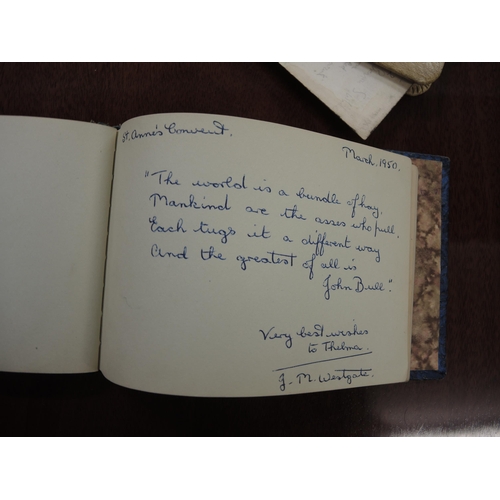 St. Anne's Convent.
March. 1950.
"The world is a bundle of hay.
Mankind are the asses who pull.
Each tugs it a different way
And the greatest of all is
John Bull".
Very best wishes
to Thelma.
J. M. Westgate.